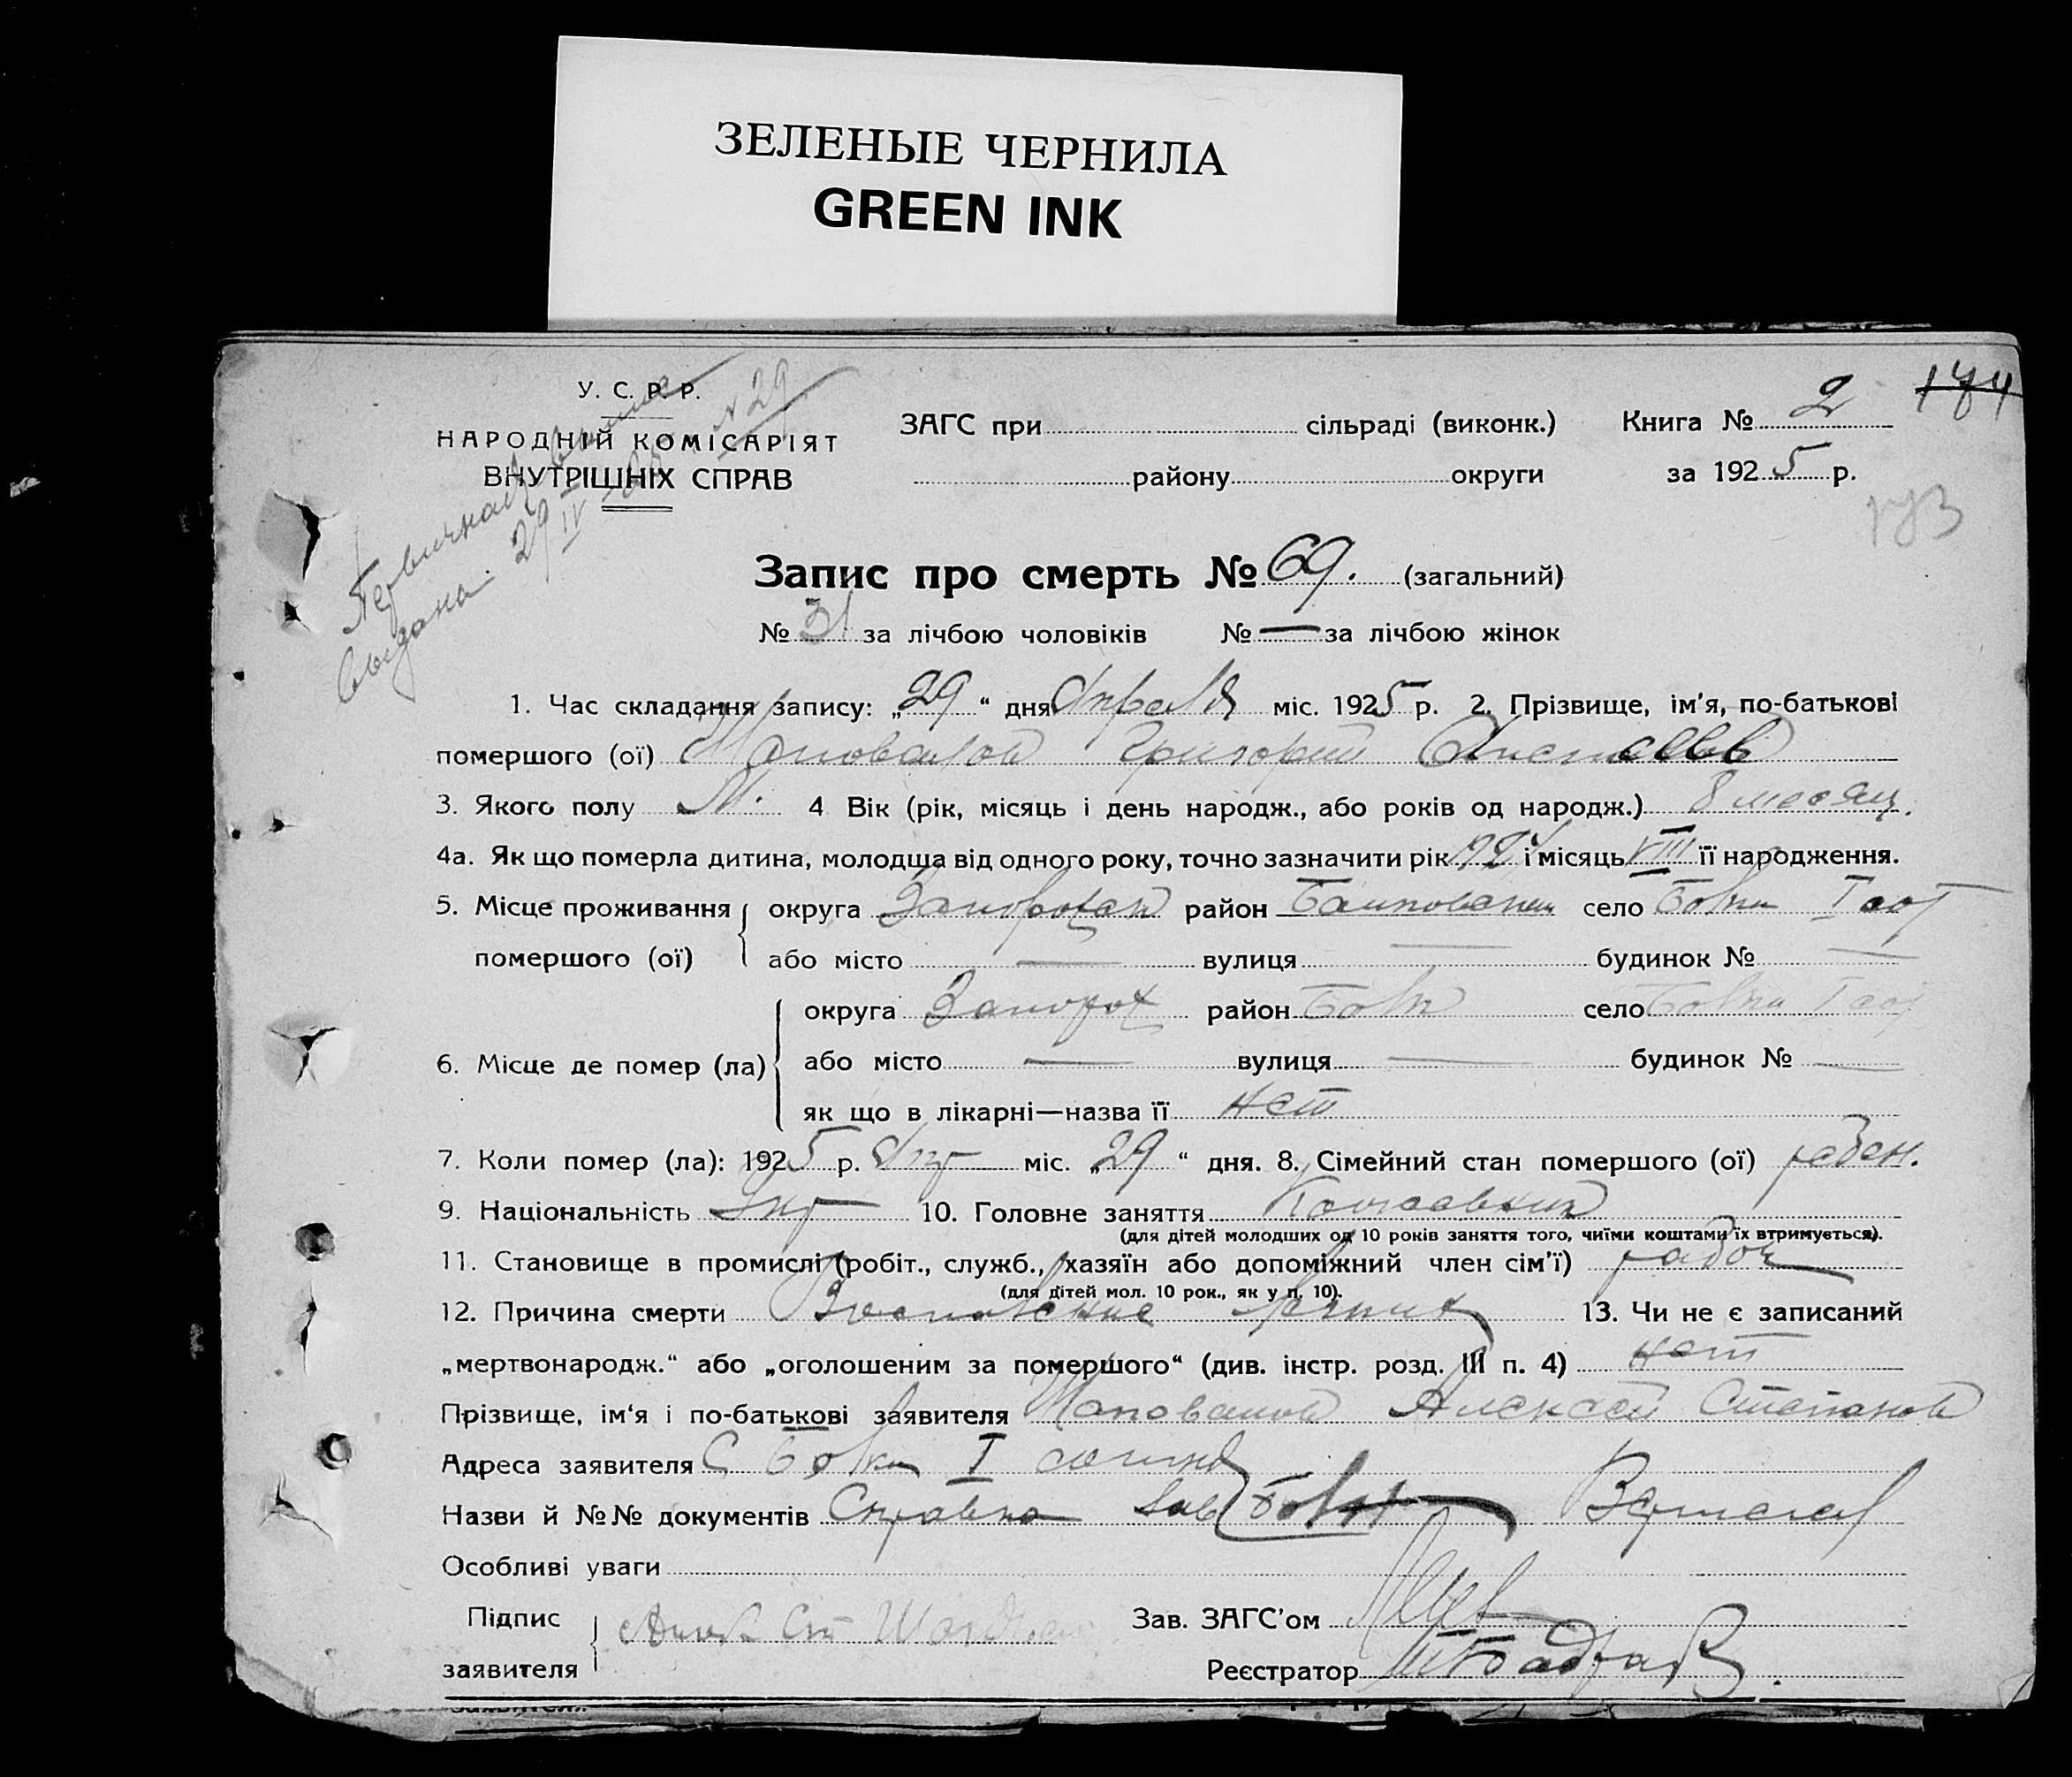 ЗЕЛЕНЫЕ ЧЕРНИЛА
GREEN INK
У. С. Р. Р.
НАРОДНІЙ КОМІСАРІЯТ
ВНУТРІШНІХ СПРАВ
ЗАГС при сільраді (виконк.)
району округи
Книга № 2
174
за 1925 р.
173
выдана 29 IV №29
Запис про смерть № 69. (загальний)
№ 31 за лічбою чоловіків № — за лічбою жінок
1. Час складання запису: „29“ дня Апреля міс. 1925 р. 2. Прізвище, ім'я, по-батькові
помершого (ої) Шаповалов Григорий Алексеев
3. Якого полу М. 4 Вік (рік, місяць і день народж., або років од народж.) 8 месяц.
4а. Як що померла дитина, молодща від одного року, точно зазначити рік 1924 і місяць VIII її народження.
5. Місце проживання округа район село I
помершого (ої) або місто — вулиця — будинок № —
округа Запорож район село I
6. Місце де помер (ла) або місто — вулиця — будинок № —
як що в лікарні—назва її нет
7. Коли помер (ла): 1925 р. Апр міс. „29“ дня. 8. Сімейний стан помершого (ої) ребен.
9. Національність Укр 10. Головне заняття
(для дітей молодших од 10 років заняття того, чиїми коштами їх втримується).
11. Становище в промислі (робіт., служб., хазяїн або допоміжний член сім'ї) рабоч
(для дітей мол. 10 рок., як у п. 10).
12. Причина смерти Воспаление 13. Чи не є записаний
„мертвонародж.“ або „оголошеним за помершого“ (див. інстр. розд. III п. 4) нет
Прізвище, ім'я і по-батькові заявителя Шаповалов Алексей Степанов
Адреса заявителя С I
Назви й №№ документів Справка
Особливі уваги
Підпис
заявителя
Зав. ЗАГС'ом
Реєстратор